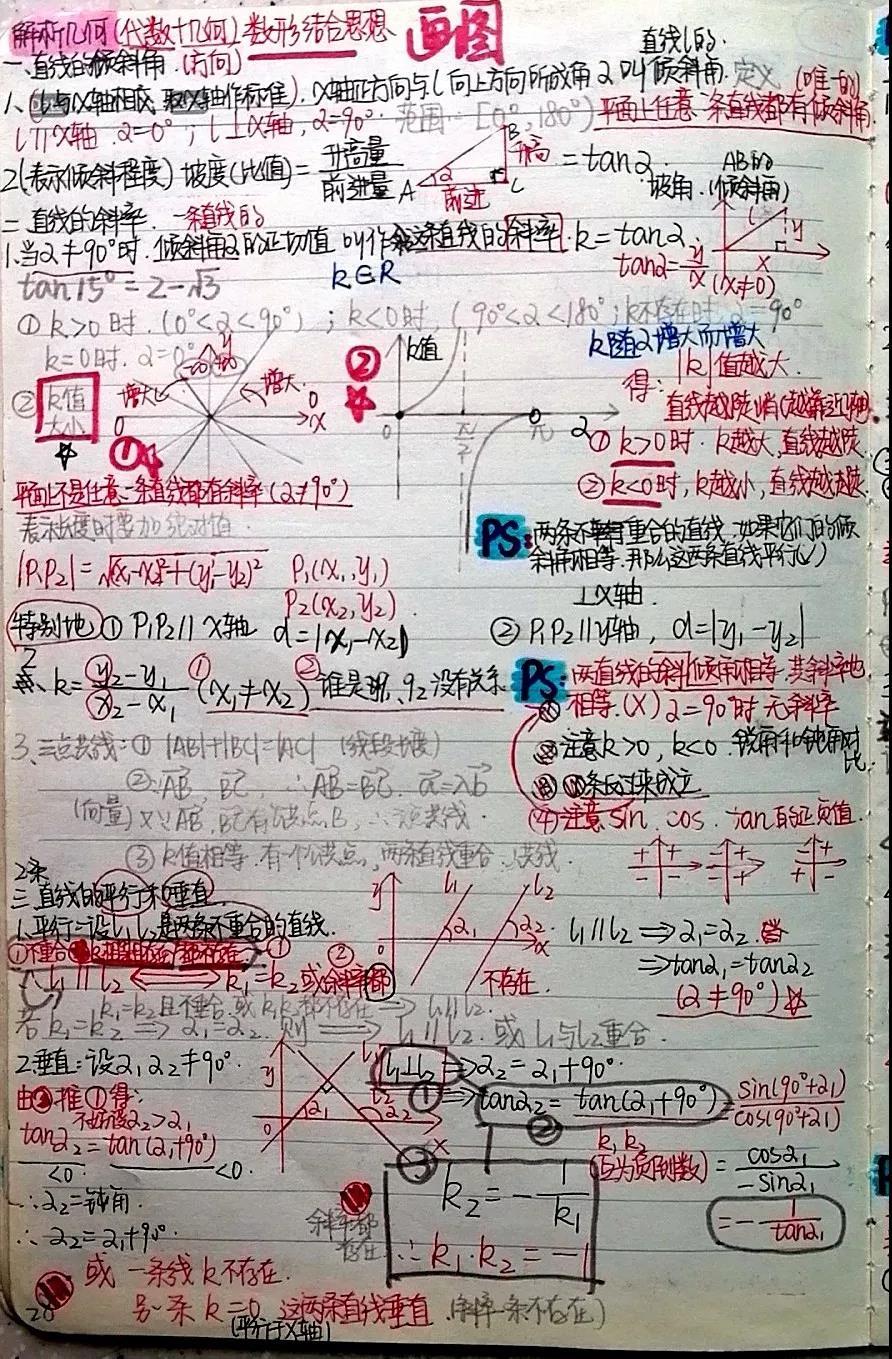 解析几何(代数+几何) 数形结合思想 画图
一、直线的倾斜角.(方向) 直线l的
1、(l与x轴相交,取x轴作标准). x轴正方向与l向上方向所成角α叫倾斜角. 定义 (唯一的)
l∥x轴.α=0°; l⊥x轴,α=90° 范围:[0°,180°) 平面上任意一条直线都有倾斜角
2(表示倾斜程度) 坡度(比值)=升高量/前进量 A α 前进 B 升高 C =tanα. AB的坡角.(倾斜角)
二、直线的斜率. 一条直线的
1.当α≠90°时.倾斜角α的正切值 叫作 这条直线的斜率. k=tanα. l y x
tanα=y/x (x≠0)
tan15°=2-√3 k∈R
①k>0时.(0°<α<90°); k<0时,(90°<α<180°; k不存在时,α=90°
k=0时.α=0° k随α增大而增大
② k值大小 增大 增大 0 0 x ①
② k值 0 π/2 π α
得: |k|值越大.
直线越陡峭(越靠近y轴
①k>0时.k越大,直线越陡.
②k<0时,k越小,直线越陡.
平面上不是任意一条直线都有斜率(α≠90°)
表示长度时要加绝对值.
PS:两条不重合的直线.如果它们的倾
斜角相等.那么这两条直线平行(√)
|P₁P₂|=√(x₁-x₂)²+(y₁-y₂)² P₁(x₁,y₁)
P₂(x₂,y₂)
⊥x轴.
特别地 ①P₁P₂∥x轴 d=|x₁-x₂| ②P₁P₂∥y轴, d=|y₁-y₂|
2、k=y₂-y₁/x₂-x₁ ①(x₁≠x₂) ②谁是 没有关系
PS:两直线的倾斜角相等.其斜率也
相等.(X) α=90°时 无斜率
注意k>0,k<0 锐角和钝角对比
反过来成立
(4)注意sin、cos、tan的正负值.
+ + - - - + - + - + + -
3、三点共线:①|AB|+|BC|=|AC| (线段长度)
②AB BC ∴AB=BC. a=λb
(向量) 又∵AB,BC有公共点B,∴三点共线.
③k值相等.有一个公共点,两条直线重合.共线.
2条
三.直线的平行和垂直
1.平行:设l₁ l₂是两条不重合的直线.
①不重合
l₁∥l₂ ⟺ ①k₁=k₂ 或 ②斜率都不存在.
y l₁ l₂ α₁ α₂ 0 x
l₁∥l₂ ⟹α₁=α₂.
⟹tanα₁=tanα₂
(α≠90°)
k₁=k₂且不重合.或k₁k₂都不存在⟹l₁∥l₂.
若k₁=k₂⟹α₁=α₂. 则⟹l₁∥l₂.或l₁与l₂重合.
2.垂直:设α₁α₂≠90°.
y l₁ l₂ α₁ α₂ 0 x
l₁⊥l₂ ⟹α₂=α₁+90°.
①⟹tanα₂=tan(α₁+90°)=sin(90°+α₁)/cos(90°+α₁)
②
k₁,k₂
(互为负倒数) =cosα₁/-sinα₁
=-1/tanα₁
由③推①得:
不妨设α₂>α₁
tanα₂=tan(α₁+90°)
<0. <0.
∴α₂=钝角
∴α₂=α₁+90°.
③ k₂=-1/k₁
∴k₁·k₂=-1
斜率都存在
或 一条线k不存在.
另一条 k=0 这两条直线垂直 (斜率一条不存在)
(平行于x轴)
28